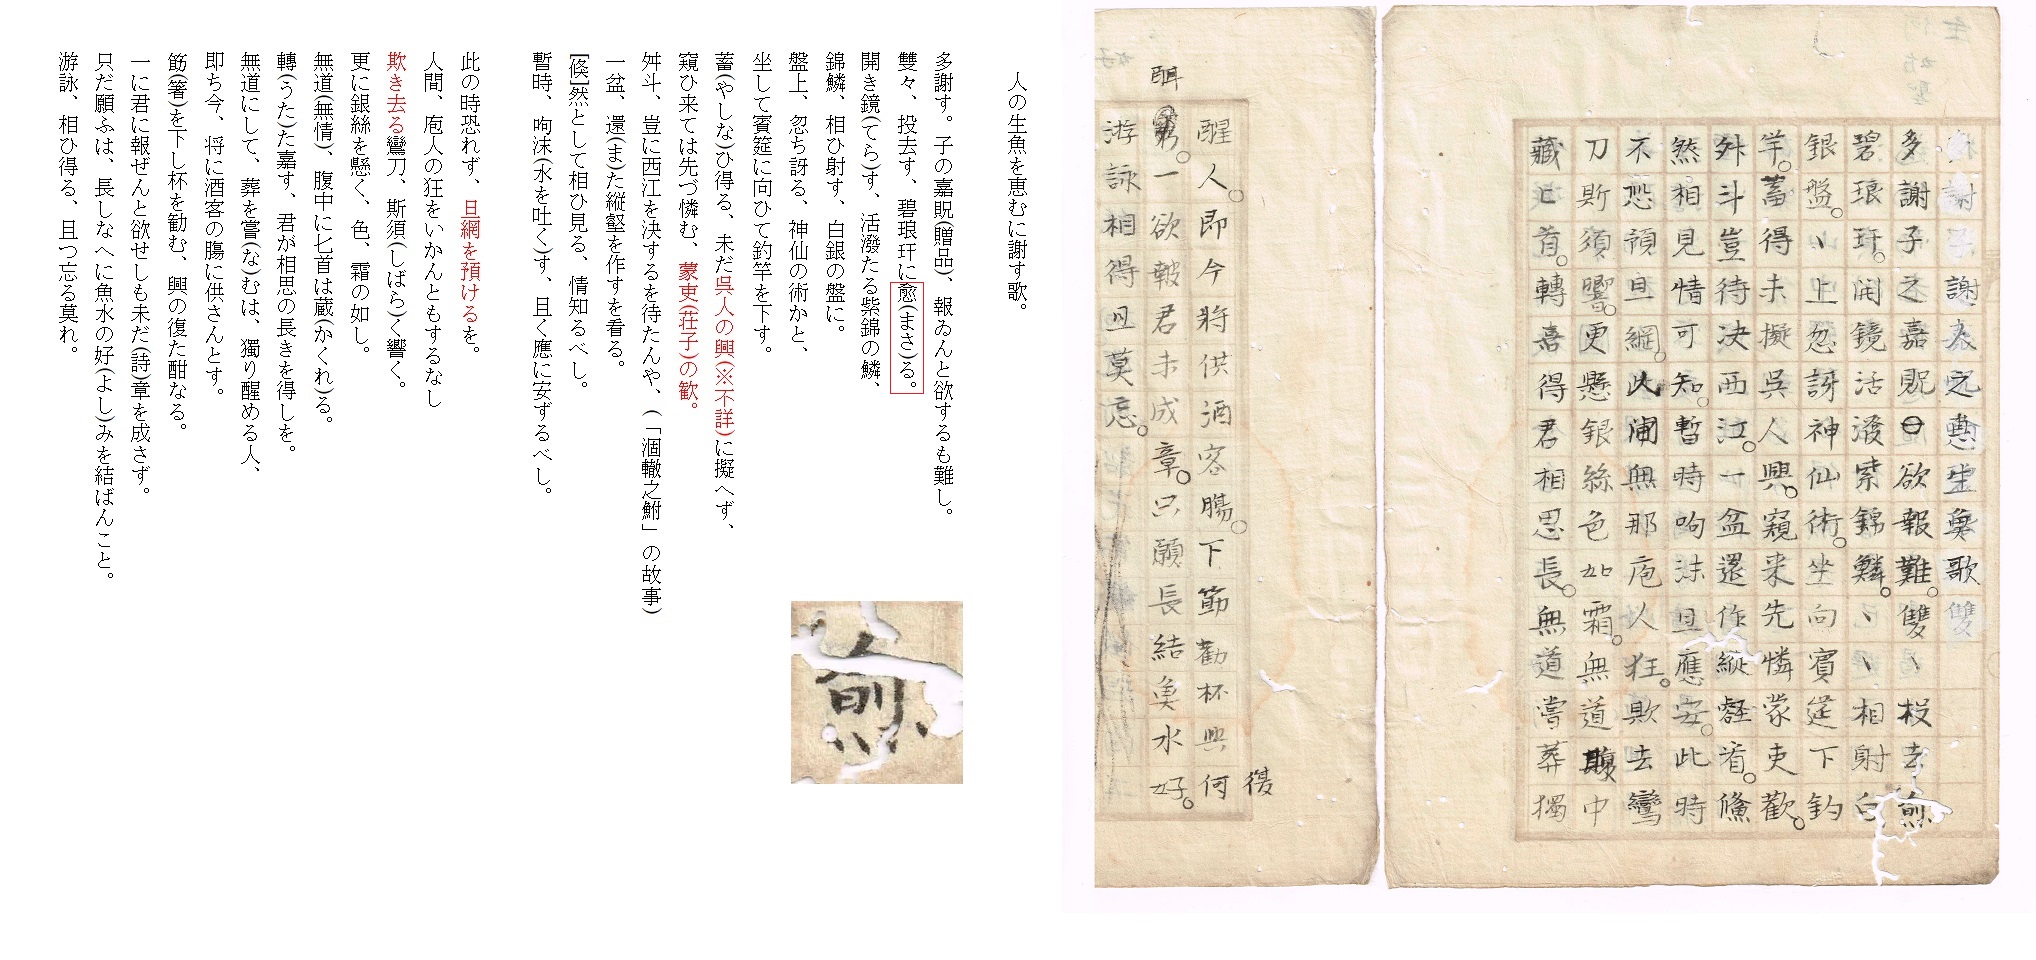 謝之惠生魚歌
多謝子之嘉貺欲報難。雙丶投去
碧琅玕。開鏡活潑紫錦鱗。丶丶相射白
銀盤。丶上忽訝神仙術。坐向賓筵下釣
竿。蓄得未擬呉人興。窺来先憐蒙吏歡。
舛斗豈待决西江。一盆還作縱壑看。儵
然相見情可知。暫時呴沫且應安。此時
不恐預且網。此間無那庖人狂。欺去鸞
刀斯須響。更懸銀絲色如霜。無道腹中
藏匕首。轉嘉得君相思長。無道嘗葬獨
復
醒人。即今將供酒客腸。下筯勸杯興何
酣
一欲報君未成章。只願長結魚水好。
游詠相得且莫忘。
人の生魚を恵むに謝す歌。
多謝す。子の嘉貺(贈品)、報ゐんと欲するも難し。
雙々、投去す、碧琅玕に愈(まさ)る。
開き鏡(てら)す、活潑たる紫錦の鱗、
錦鱗、相ひ射す、白銀の盤に。
盤上、忽ち訝る、神仙の術かと、
坐して賓筵に向ひて釣竿を下す。
蓄(やしな)ひ得る、未だ呉人の興(※不詳)に擬へず、
窺ひ来ては先づ憐む、蒙吏(荘子)の歓。
舛斗、豈に西江を決するを待たんや、(「涸轍之鮒」の故事)
一盆、還(ま)た縦壑を作すを看る。
[倏]然として相ひ見る、情知るべし。
暫時、呴沫(水を吐く)す、且く應に安ずるべし。
此の時恐れず、旦網を預けるを。
人間、庖人の狂をいかんともするなし
欺き去る鸞刀、斯須(しばら)く響く。
更に銀絲を懸く、色、霜の如し。
無道(無情)、腹中に匕首は蔵(かくれ)る。
轉(うた)た嘉す、君が相思の長きを得しを。
無道にして、葬を嘗(な)むは、獨り醒める人、
即ち今、将に酒客の腸に供さんとす。
筯(箸)を下し杯を勧む、興の復た酣なる。
一に君に報ぜんと欲せしも未だ(詩)章を成さず。
只だ願ふは、長しなへに魚水の好(よし)みを結ばんこと。
游詠、相ひ得る、且つ忘る莫れ。